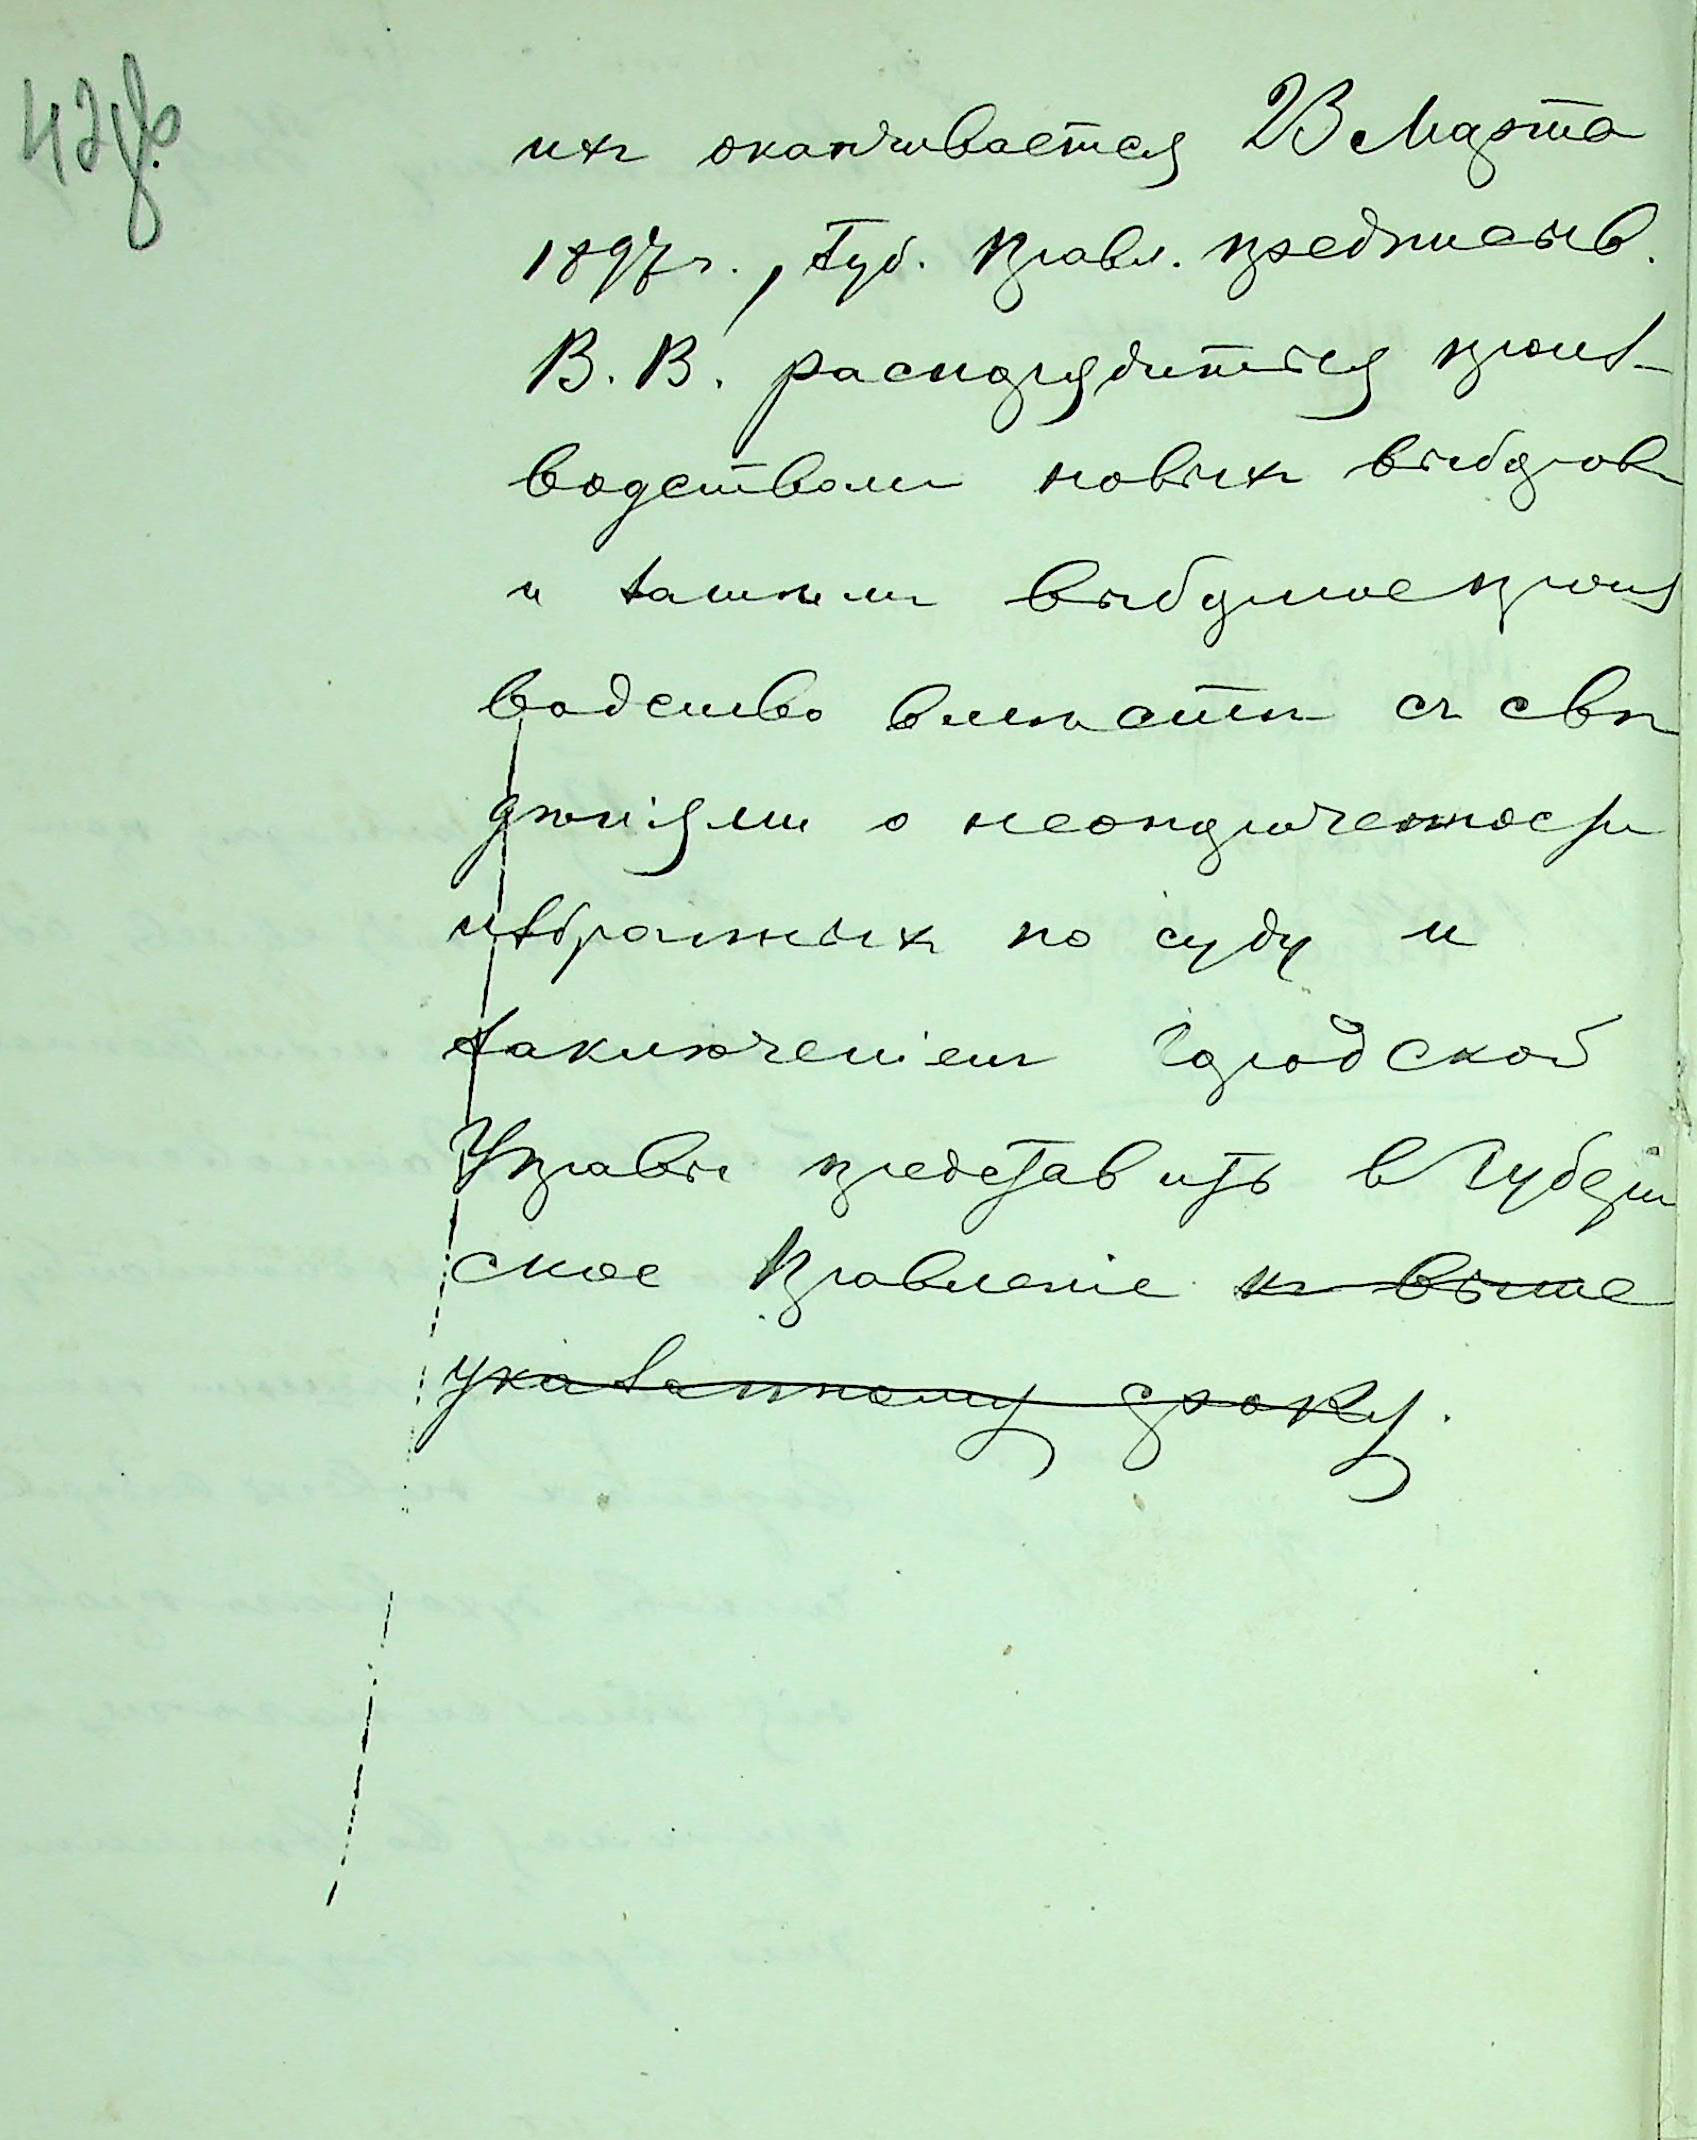 42об.
ихъ оканчивается 23 Марта
1897 г., Губ. Правл. предписыв.
В. В. распорядиться произ-
водствомъ новыхъ выборовъ
и самымъ выборное произ
водство вмѣстѣ съ свѣ
дѣніями о неопороченности
избранныхъ по суду и
заключеніемъ Городской
Управы представить в Губерн
ское Правленіе къ выше
указанному сроку.